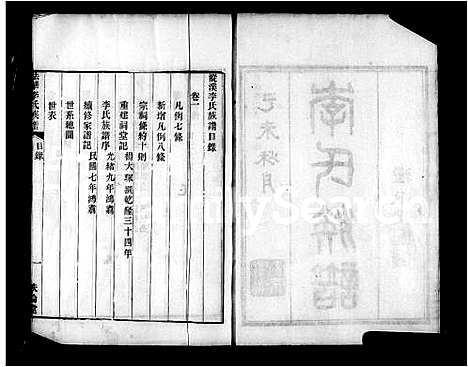 李氏族譜
己未秋月
MySearch
漎溪李氏族譜目錄
卷一
凡例七條
新增凡例八條
宗祠條約十則
重建祠堂記 楊大琛撰乾隆三十四年
李氏族譜序 光緒九年鴻翥
續修家譜記 民國七年鴻翥
世系總圖
世表
李氏族譜
目錄
敦倫堂